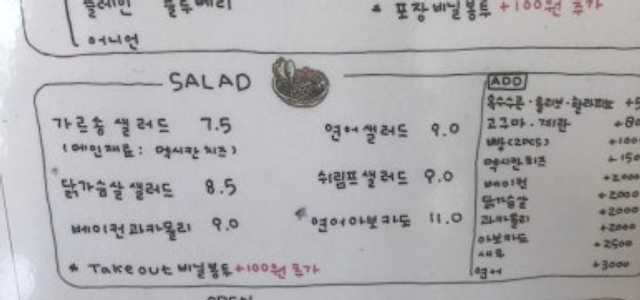 플레인 블루베리
* 포장 비닐봉투 +100원 추가
어니언
SALAD
가르송 샐러드 7.5
(메인재료: 멕시칸 치즈)
닭가슴살 샐러드 8.5
베이컨 과카몰리 9.0
연어 샐러드 9.0
쉬림프 샐러드 9.0
연어 아보카도 11.0
* Takeout 비닐봉투 +100원 추가
ADD
옥수수콘·올리브·할라피뇨
고구마·계란
빵(2PCS)
멕시칸치즈
베이컨 +2000
닭가슴살 +2000
과카몰리 +2000
아보카도 +2000
새우 +2500
연어 +3000